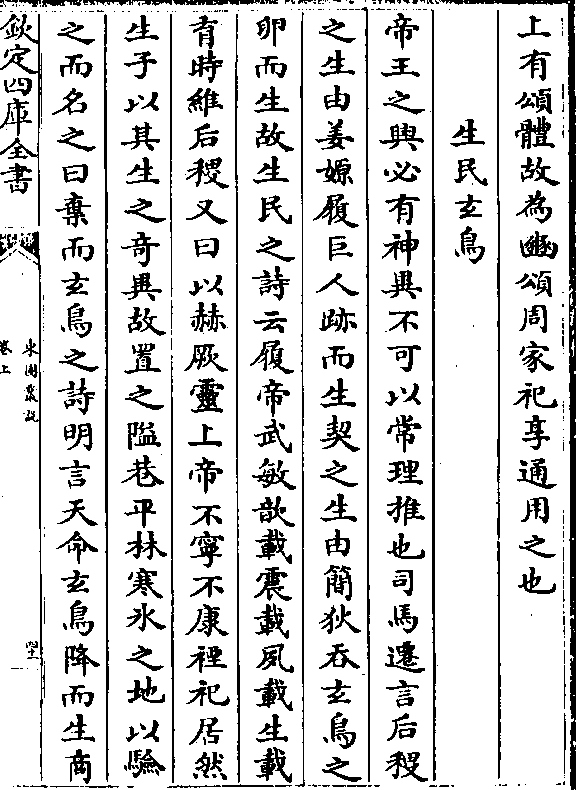 上有頌體故為豳頌周家祀享通用之也
生民玄鳥
帝王之興必有神異不可以常理推也司馬遷言后稷
之生由姜嫄履巨人跡而生契之生由簡狄吞玄鳥之
卵而生故生民之詩云履帝武敏歆載震載夙載生載
育時維后稷又曰以赫厥靈上帝不寧不康禋祀居然
生子以其生之奇異故置之隘巷平林寒氷之地以驗
之而名之曰棄而玄鳥之詩明言天命玄鳥降而生商
欽定四庫全書
卷上
東園叢說